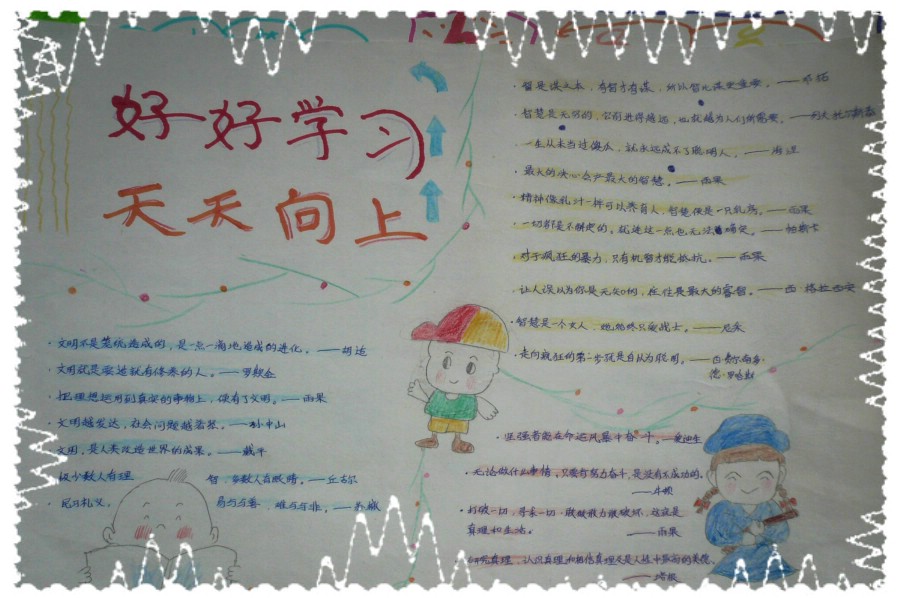 好好学习
天天向上
·智是谋之本，有智才有谋，所以智比谋更重要。——邓拓
·智慧是无穷的，它前进得越远，也就越为人们所需要。——列夫托尔斯泰
·一生从未当过傻瓜，就永远成不了聪明人。——海涅
·最大的决心会产最大的智慧。——雨果
·精神像乳汁一样可以养育人，智慧便是一只乳房。——雨果
·一切都是不肯定的，就连这一点也无法确定。——帕斯卡
·对于疯狂的暴力，只有机智才能抵抗。——雨果
让人误以为你是无知的，往往是最大的睿智。——西·格拉西安
·智慧是一个女人，她始终只爱战士。——尼采
·走向疯狂的第一步就是自认为聪明。——
德·罗哈斯
·文明不是笼统造成的，是一点一滴地造成的进化。——胡适
·文明就是要造就有修养的人。——罗斯金
·把理想运用到真实的事物上，便有了文明。——雨果
·文明越发达，社会问题越着紧。——孙中山
文明，是人类改造世界的成果。——戴平
极少数人有理 智，多数人有眼睛。——丘吉尔
·坚强者能在命运风暴中奋斗。——爱迪生
·无论做什么事情，只要肯努力奋斗，是没有不成功的。
——牛顿
·打破一切，寻求一切
真理和生活。 ——雨果
真理，认识真理和相信真理是人性中最高的美德。
——培根